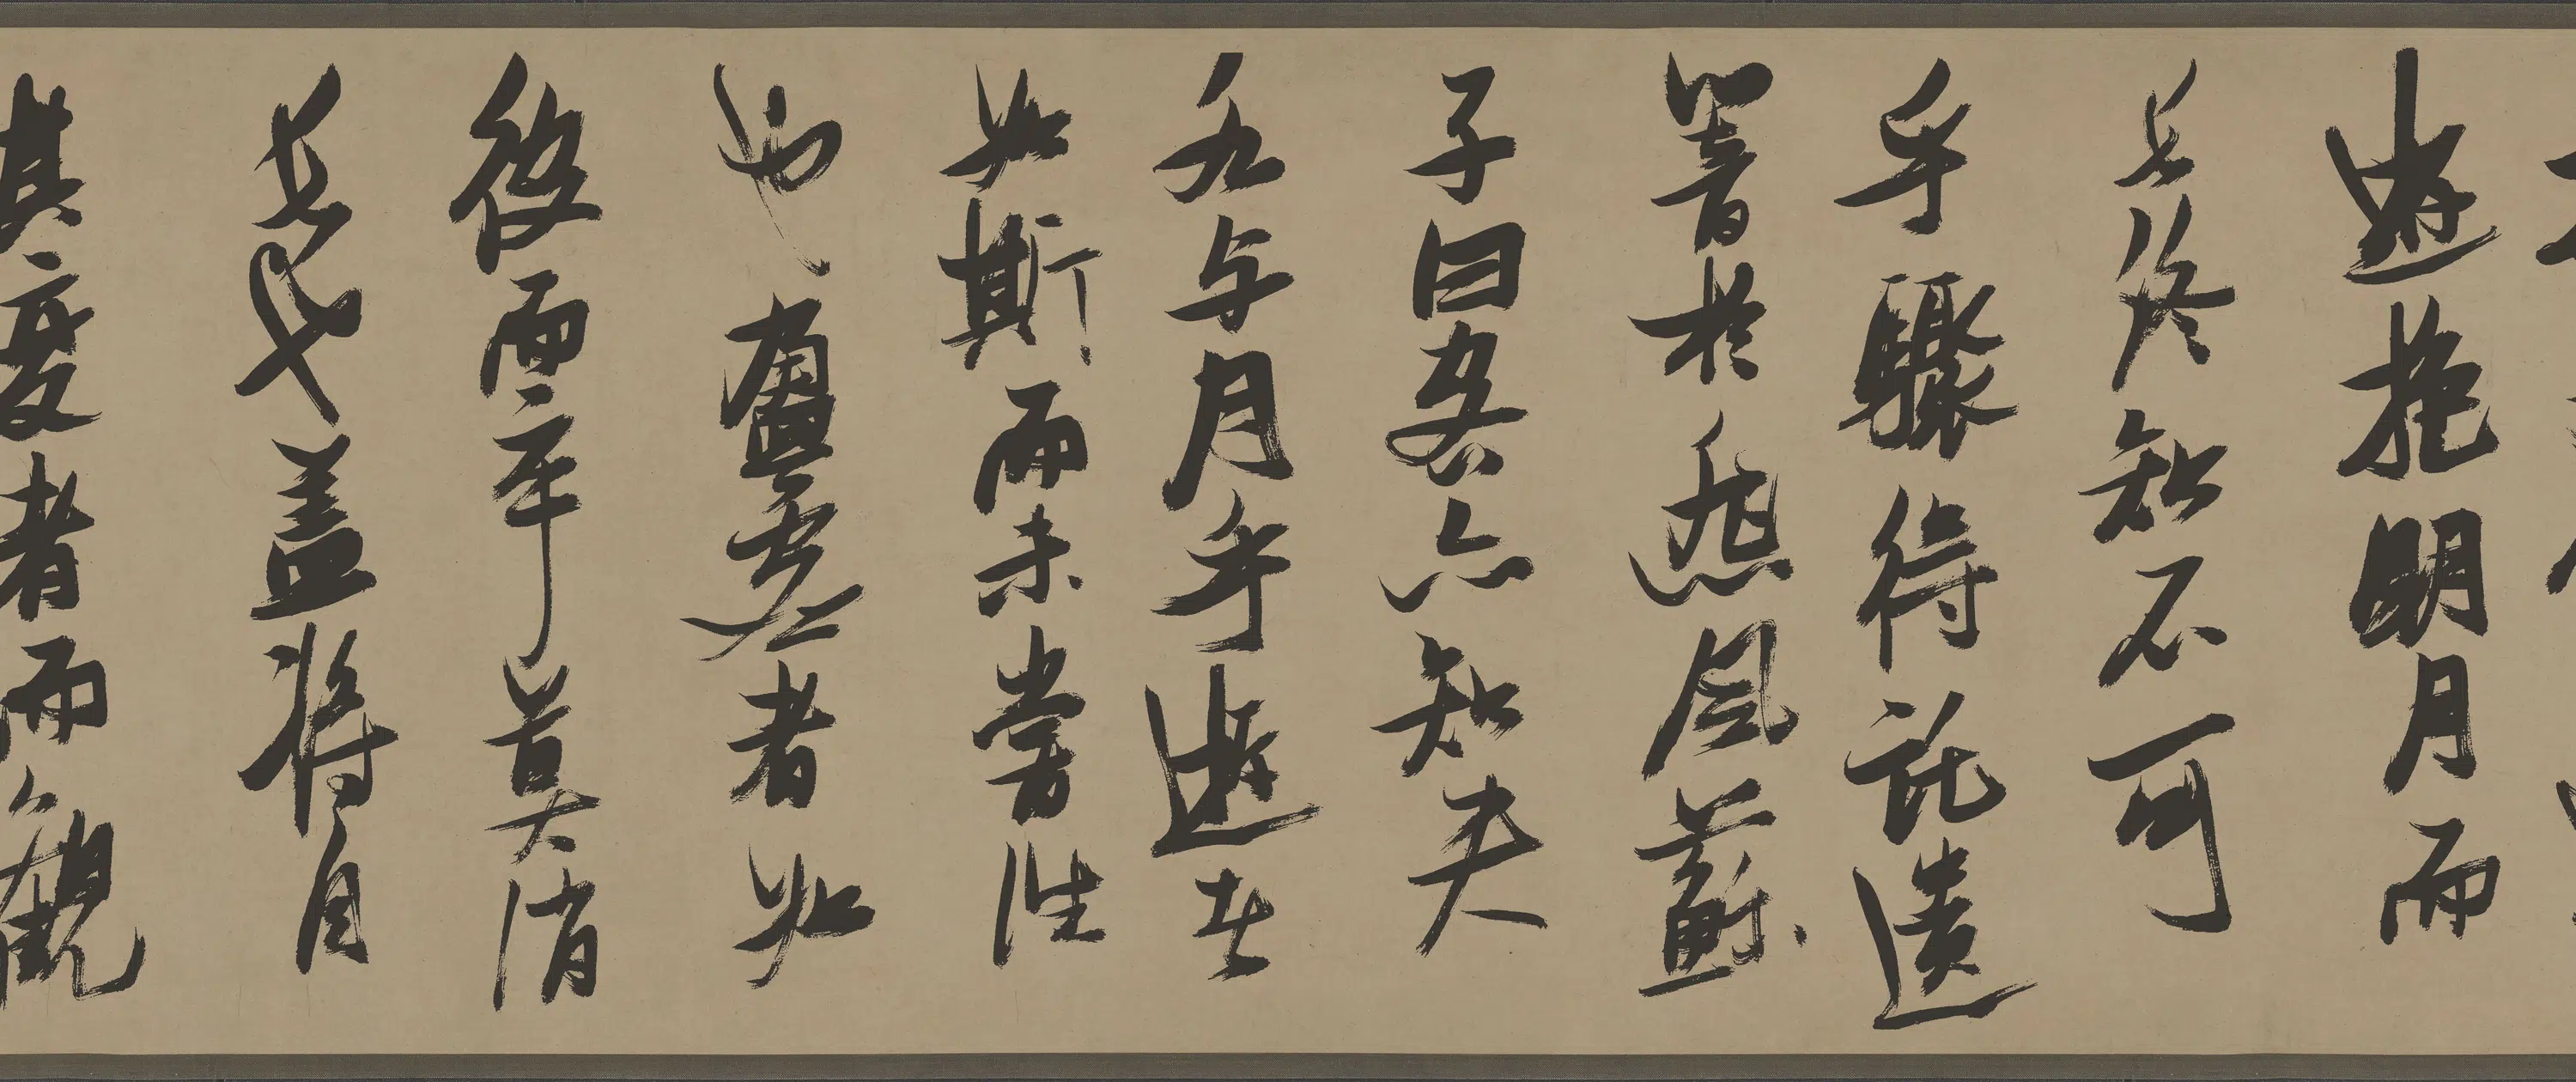 遊抱明月而
長終知不可
乎驟得託遺
響於悲風蘇
子曰客亦知夫
水与月乎逝者
如斯而未嘗往
也盈虛者如
彼而卒莫消
長也盖將自
其變者而觀